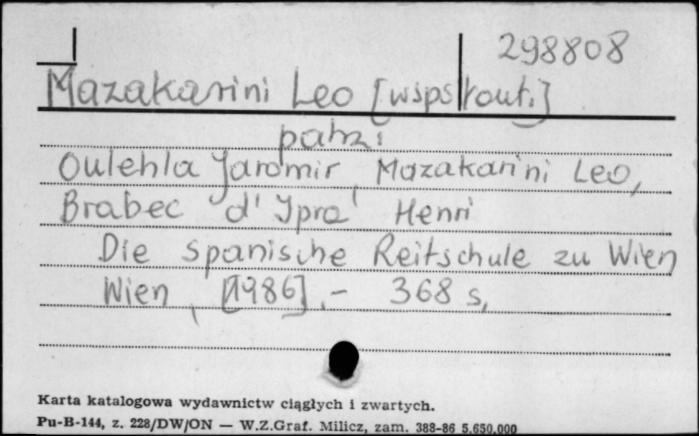 298808
Mazakarini Leo [współaut.]
patrz:
Oulehla Jaromir, Mazakarini Leo,
Brabec d'Ipra' Henri
Die Spanische Reitschule zu Wien
Wien, [1986].- 368 s,
Karta katalogowa wydawnictw ciągłych i zwartych.
Pu-B-144, z. 228/DW/ON — W.Z.Graf. Milicz, zam. 388-86 5.650.000